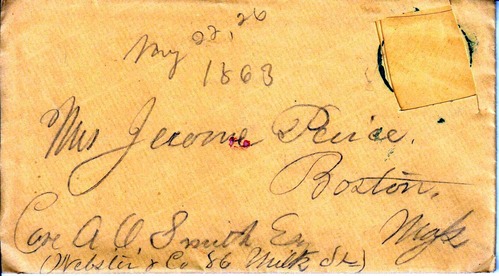 May 22, 26
1863
Mrs Jerome Peirce.
Boston,
Care A. O. Smith Esq Mass
(Webster & Co 86 Milk St)